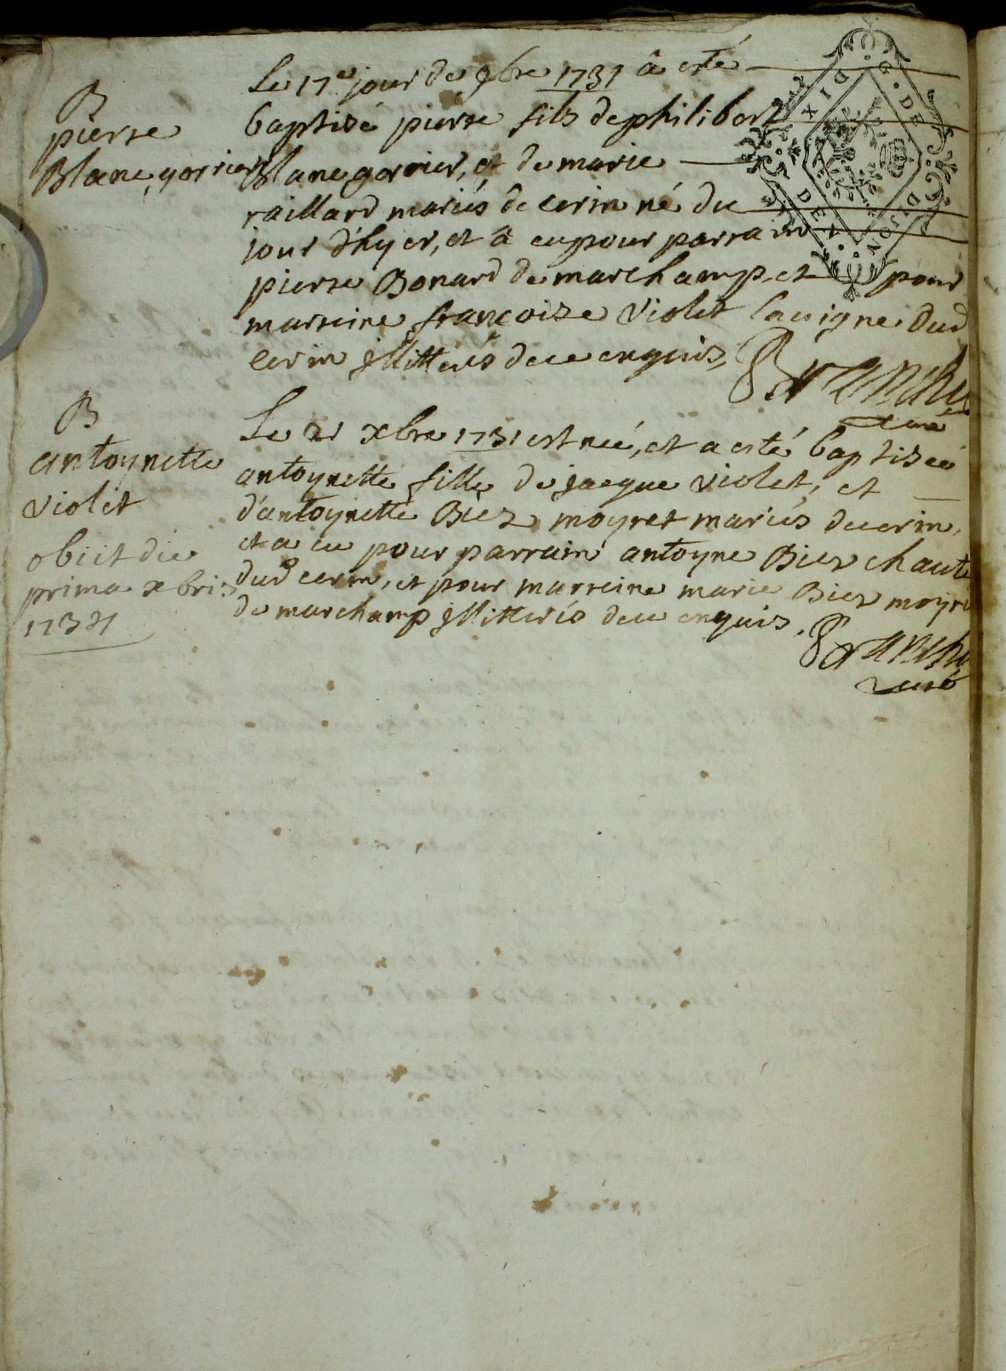 B
pierre
Blanc gorrier
Le 17e jour de 9bre 1731 â esté
baptisé pierre fils de philibert
Blanc gorrier, et de marie
raillard mariés de cerin né du
jour d'hyer, et â eu pour parrain
pierre Bonard de marchamp, et pour
marreine françoise violet lavigne dud
cerin illitterés de ce enquis,
Branche
curé
B
antoynette
violet
obiit die
prima xbris
1731
Le xbre 1731 est neé, et a esté baptiseé
antoynette fille de jacque violet, et
d'antoynette Biez moyret mariés de cerin,
et a eu pour parrain antoyne Biez
dud cerin, et pour marreine marie Biez
de marchamp illitterés de ce enquis,
Branche
curé
G. DE DIJON
DIX DEN.